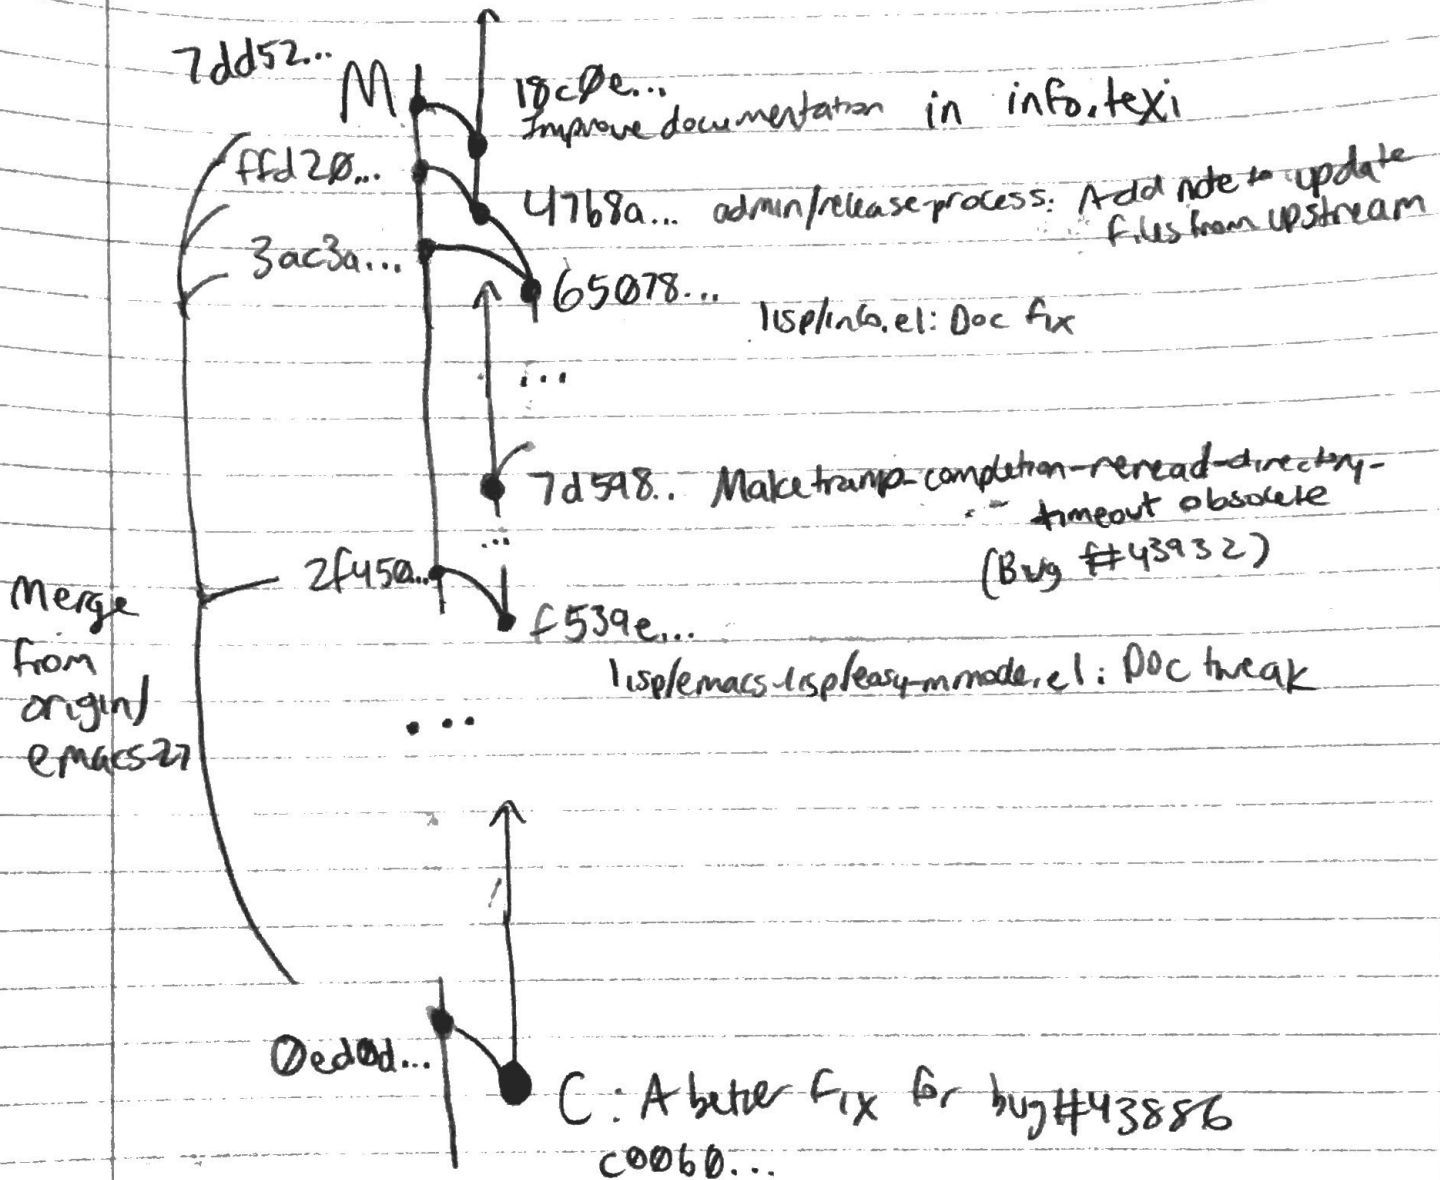 7dd52...
M
18c0e...
Improve documentation in info.texi
ffd20...
47b8a... admin/release-process: Add note to update
files from upstream
3ac3a...
65078...
lisp/info.el: Doc fix
...
7d598.. Make tramp-completion-reread-directory-
timeout obsolete
(Bug #43932)
...
2f450...
f539e...
lisp/emacs-lisp/easy-mmode.el: Doc tweak
Merge
from
origin/
emacs-27
...
0ed0d...
C: A better fix for bug#43886
c00b0...